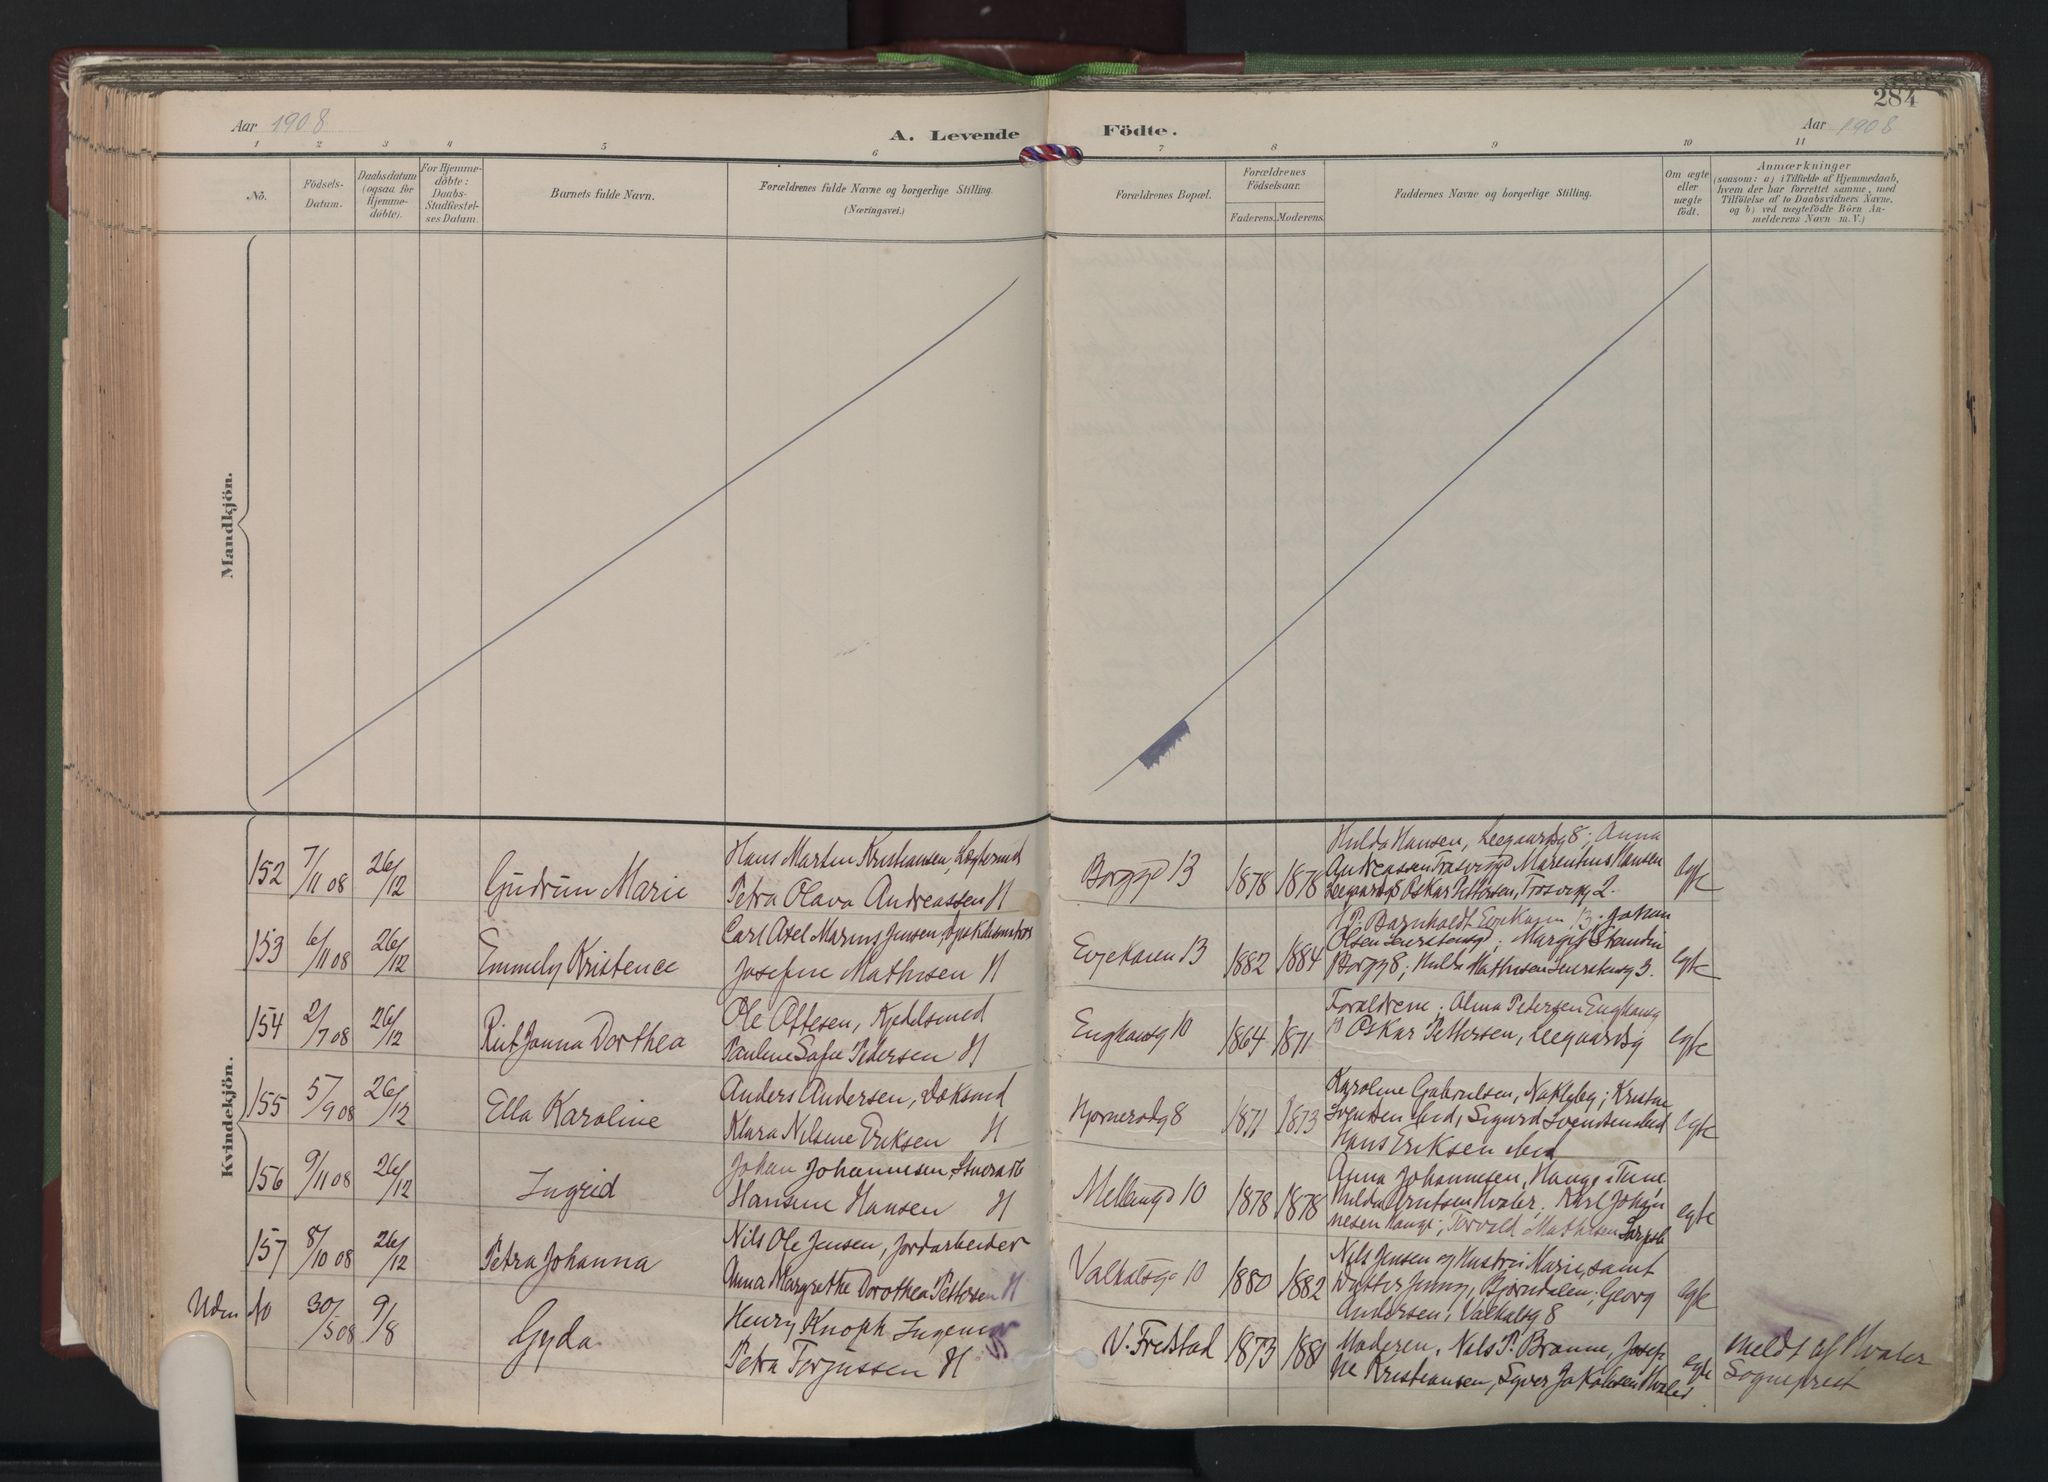 284
Aar 1908
A. Levende Födte.
Aar 1908
1 2 3 4 5 6 7 8 9 10 11
No.
Födsels-
Datum.
Daabsdatum
(ogsaa for
Hjemme-
döbte).
For Hjemme-
döbte:
Daabs-
Stadfæstel-
ses Datum.
Barnets fulde Navn.
Forældrenes fulde Navne og borgerlige Stilling.
(Næringsvei.)
Forældrenes Bopæl.
Forældrenes
Födselsaar.
Faderens. Moderens.
Faddernes Navne og borgerlige Stilling.
Om ægte
eller
uægte
födt.
Anmærkninger
(saasom: a) i Tilfælde af Hjemmedaab,
hvem der har forrettet samme, med
Tilföielse af to Daabsvidners Navne,
og b) ved uægtefödte Börn An-
melderens Navn m. V.)
Mandkjön.
Kvindekjön.
152 7/11 08 26/12 Gudrun Marie
Hans Martin Kristiansen,
Petra Olava Andreassen H
Borggd 13 1878 1878
Hulda Hansen, Leegaardsg 8; Anna
Andreassen Trosviggd, Marentius Hansen
Leegaardsg 8 Oskar Pettersen, Trosvigg 2.
egte
153 6/11 08 26/12 Emmely Kristence
Carl Axel Marius Jensen,
Josefine Mathisen H
Evjekaien 13 1882 1884
H P. Barnholdt Evjekaien 13; Johan
Olsen; Margit
Borgg 8; Hulda Mathisen
egte
154 2/7 08 26/12 Rut Janna Dorthea
Ole Ottesen, Kjedelsmed
Pauline Sofie Petersen H
Enghausg 10 1864 1871
Forældrene; Alma Petersen Enghausg
10 Oskar Pettersen, Leegaardsg
egte
155 5/9 08 26/12 Ella Karoline
Anders Andersen,
Klara Nilsine Eriksen H
Hjørnerødg 8 1871 1873
Karoline Gabrielsen, Nakleby; Kristine
Svendsen ibid, Sigurd Svendsen ibid
Hans Eriksen ibid
egte
156 9/11 08 26/12 Ingrid
Johan Johannesen,
Hansine Hansen H
Mellengd 10 1878 1878
Anna Johannesen, Hauge i Tune
Hilda Arntsen Hvaler; Karl Johan
nesen Hauge; Torvald Mathisen Sarpsb
egte
157 8/10 08 26/12 Petra Johanna
Nils Ole Jensen, Jordarbeider
Anna Margrethe Dorothea Pettersen H
Valhalsg 10 1880 1882
Nils Jensen og Hustru Marie, samt
Datter Jenny, Bjørndalen; Georg
Andersen, Valhalsg 8
egte
Uden No 30/5 08 9/8 Gyda
Henry Knoph Ingeniør
Petra Torjussen H
V. Fredstad 1873 1881
Moderen, Nils P. Brønne, Josefi
ne Kristiansen, Syver Jakobsen Hvaler
egte
Meldt af Hvaler
Sogneprest